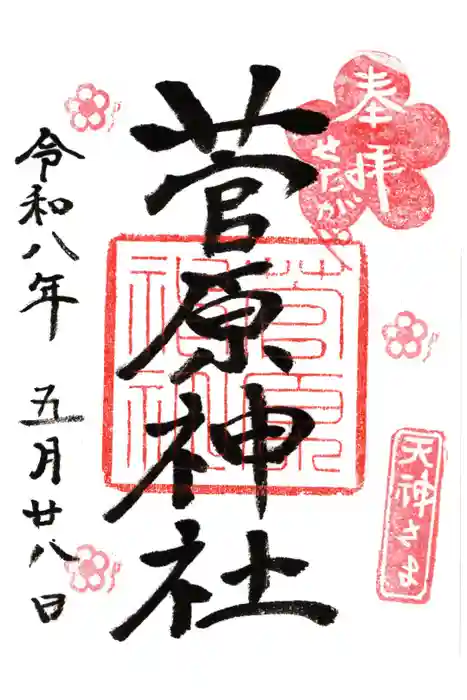 奉拝
せたがや
菅原神社
菅原
神社
天神さま
令和八年 五月廿八日